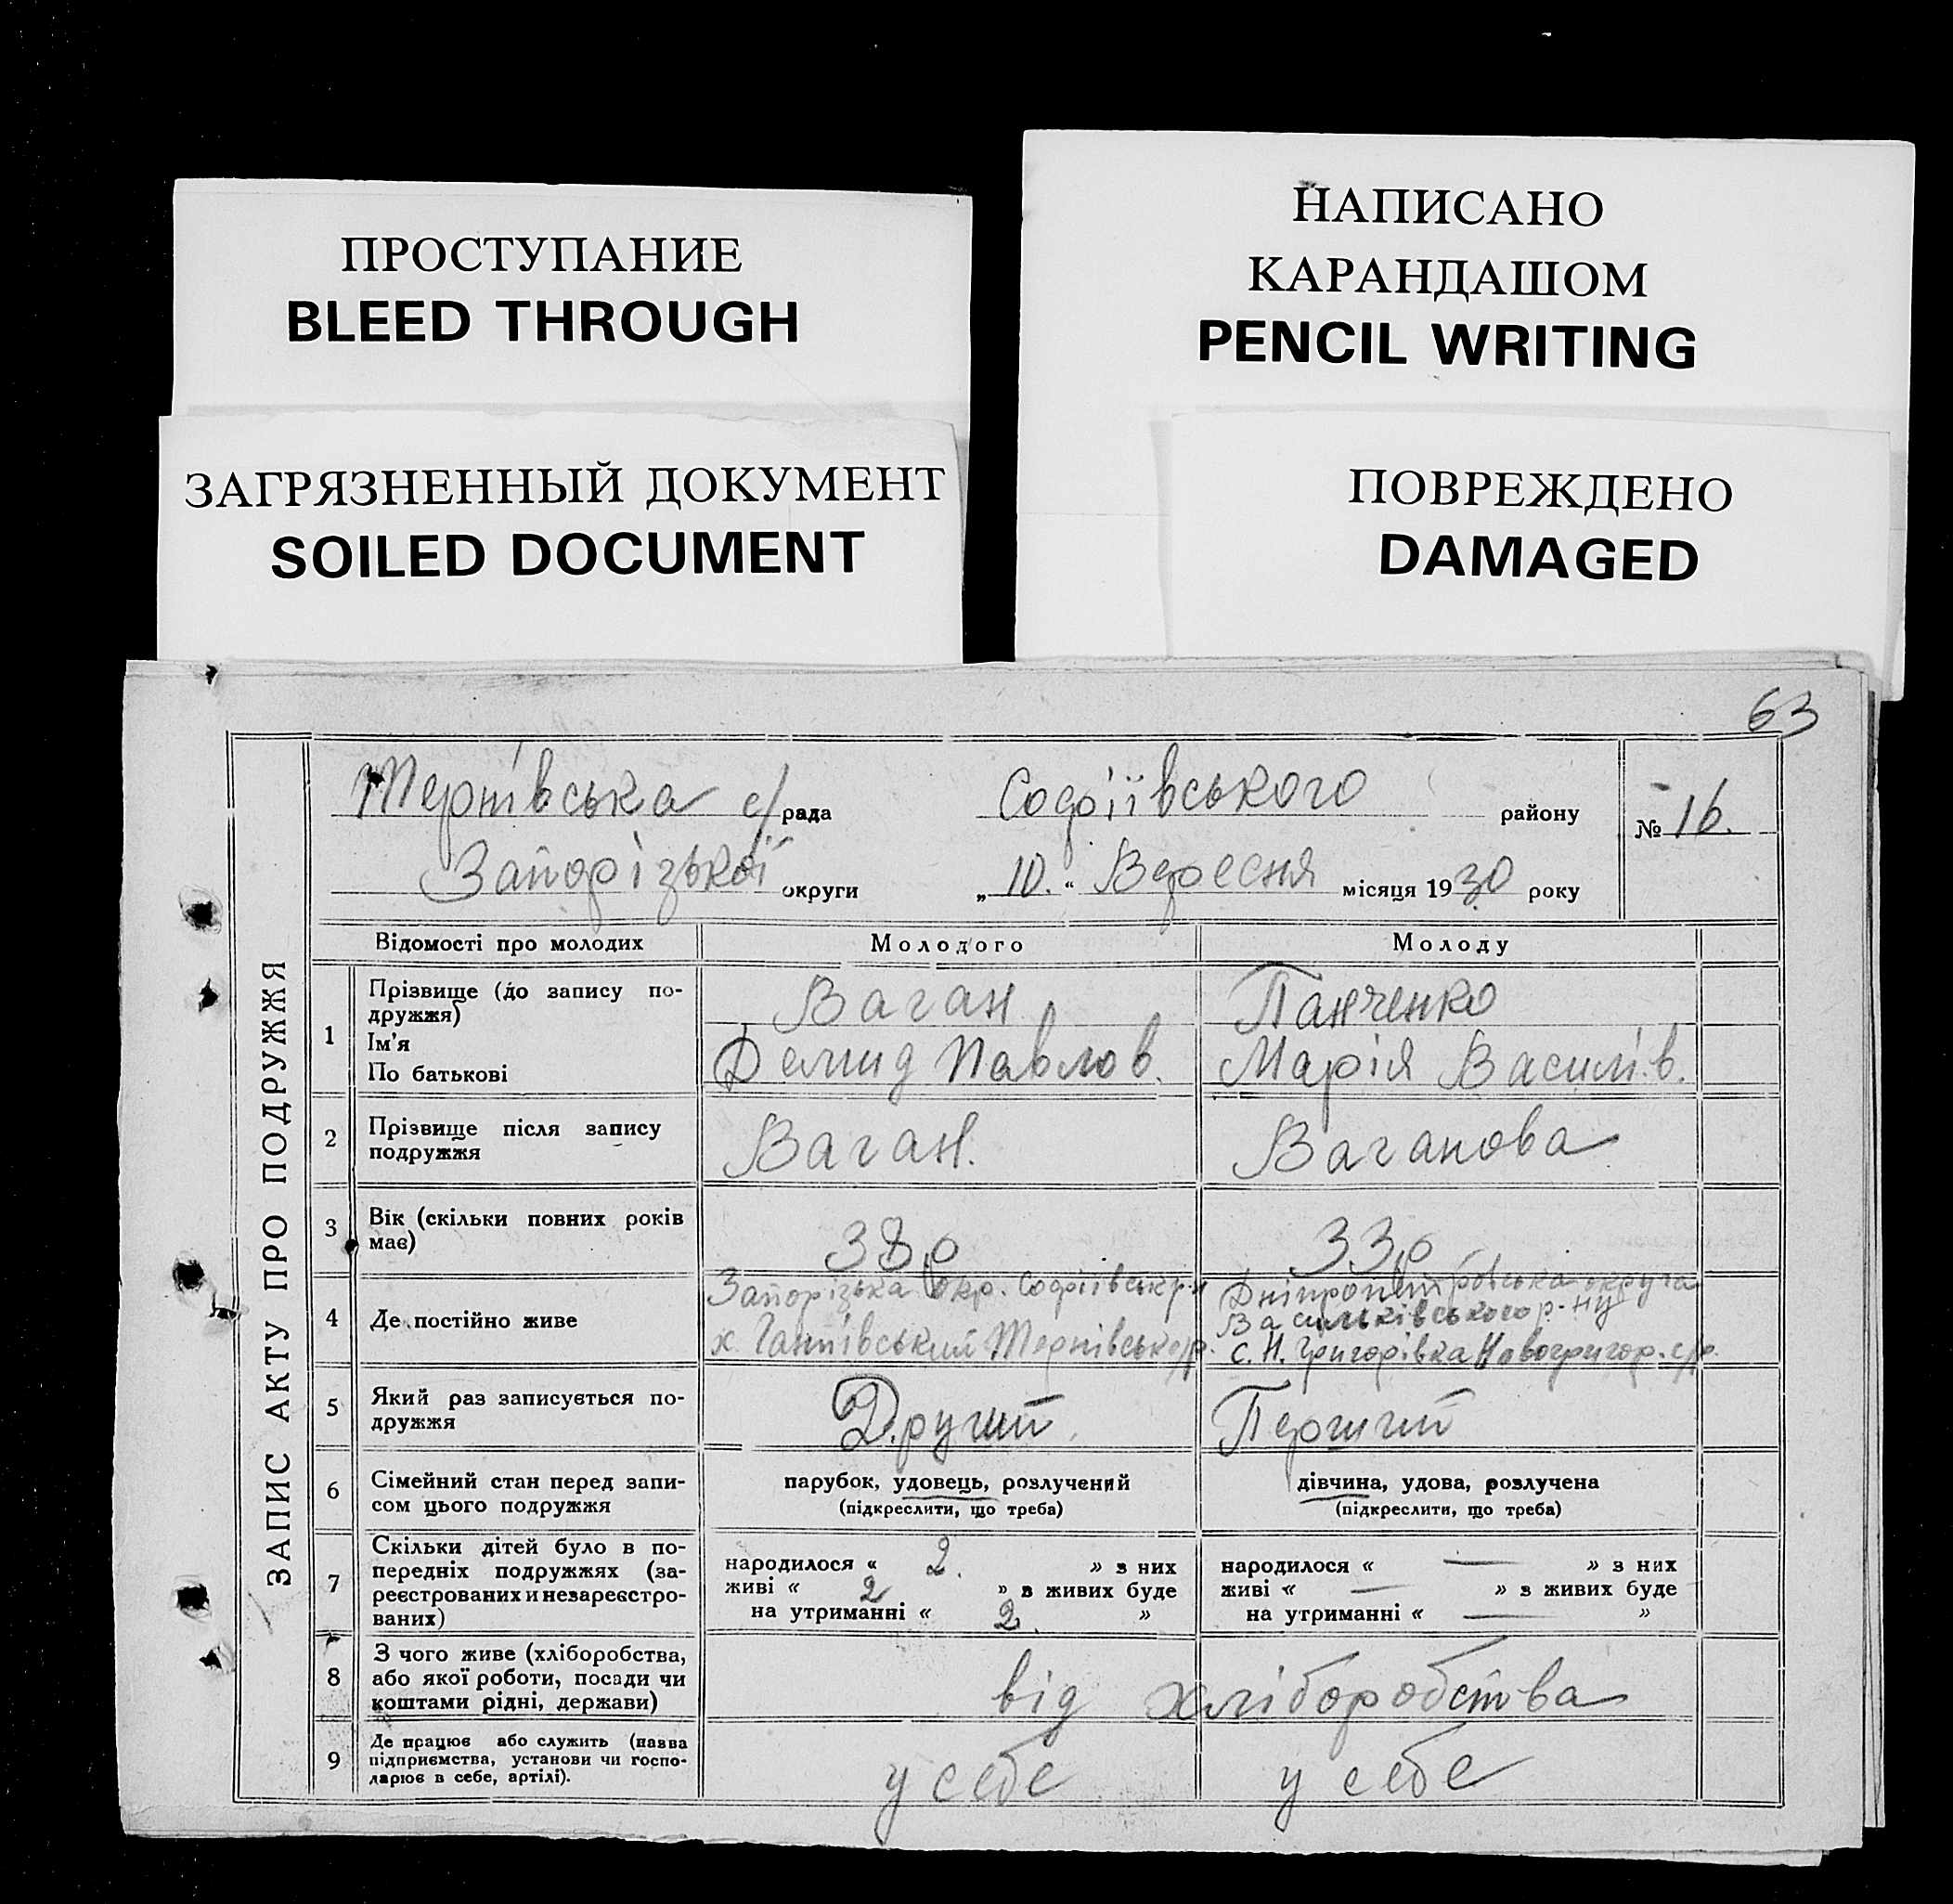 ПРОСТУПАНИЕ
BLEED THROUGH
НАПИСАНО
КАРАНДАШОМ
PENCIL WRITING
ЗАГРЯЗНЕННЫЙ ДОКУМЕНТ
SOILED DOCUMENT
ПОВРЕЖДЕНО
DAMAGED
63
ЗАПИС АКТУ ПРО ПОДРУЖЖЯ
Тернівська с/рада Софіївського району № 16.
Запорізької округи „ 10. “ Вересня місяця 1930 року
Відомості про молодих Молодого Молоду
1 Прізвище (до запису по-
дружжя) Ваган Панченко
Ім'я
По батькові Демид Павлов. Марія Василів.
2 Прізвище після запису
подружжя Ваган. Ваганова
3 Вік (скільки повних років
має) 38 р 33 р
4 Де постійно живе
Запорізька окр. Софіївськ р-н
х. Ганнівський Тернівсько
Дніпропетровська округа
Васильківського р-ну
с. Н. Григорівка Новогригор. с/р.
5 Який раз записується по-
дружжя Другий. Перший
6 Сімейний стан перед запи-
сом цього подружжя
парубок, удовець, розлучений
(підкреслити, що треба)
дівчина, удова, розлучена
(підкреслити, що треба)
7 Скільки дітей було в по-
передніх подружжях (за-
реєстрованих и незареєстро-
ваних)
народилося « 2. » з них
живі « 2 » з живих буде
на утриманні « 2. »
народилося « — » з них
живі « — » з живих буде
на утриманні « — »
8 З чого живе (хліборобства,
або якої роботи, посади чи
коштами рідні, держави)
від хліборобства
9 Де працює або служить (назва
підприємства, установи чи госпо-
дарює в себе, артілі).
у себе у себе